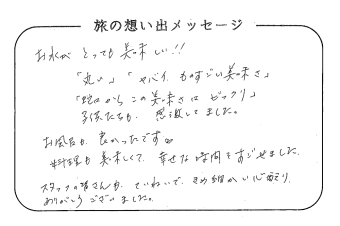 旅の想い出メッセージ
お水が とっても 美味しい!!
「丸い」「ヤバイ ものすごい美味さ」
「蛇口から この美味さは ビックリ」
子供たちも、感激してました。
お風呂も 良かったです♡
料理も 美味しくて、幸せな時間をすごせました。
スタッフの皆さんも、ていねいで、きめ細かい心配り、
ありがとうございました。